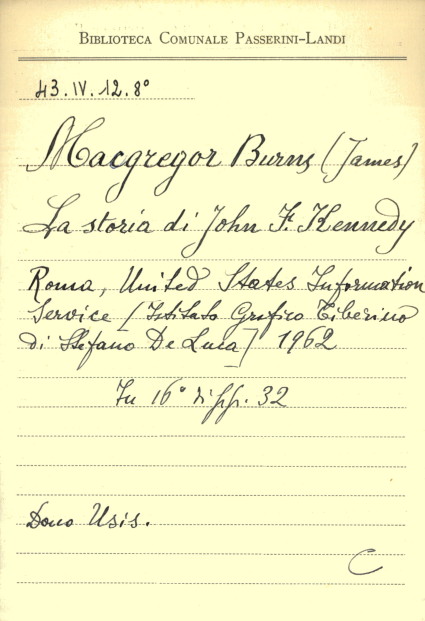 BIBLIOTECA COMUNALE PASSERINI-LANDI
43.IV.12.8°
Macgregor Burns (James)
La storia di John F. Kennedy
Roma, United States Information
Service [Istituto Grafico Tiberino
di Stefano De Luca] 1962
In 16° di pp. 32
Dono Usis.
C